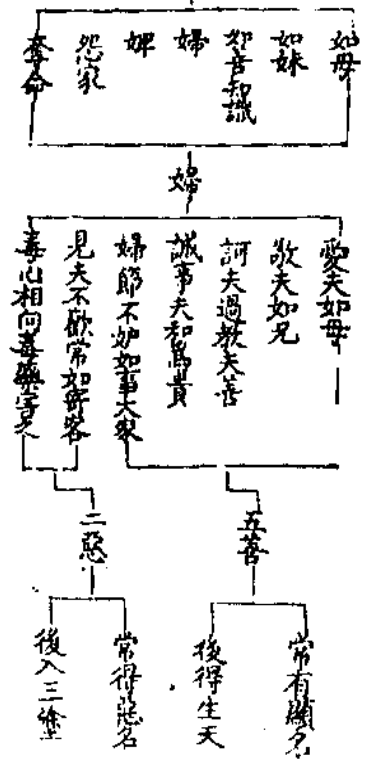 如母
如妹
知善知識
婦
婢
怨家
奪命
婦
愛夫如母
敬夫如兄
訶夫過教夫善
誠事夫和為貴
婦節不妒如事大家
見夫不歡常如寄客
毒心相向毒藥害之
五善
二惡
常有顯名
後得生天
常得惡名
後入三塗